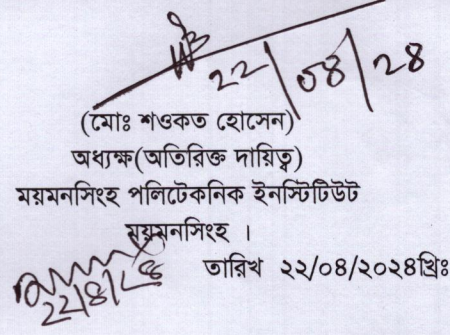 ২২/০৪/২৪
(মোঃ শওকত হোসেন)
অধ্যক্ষ(অতিরিক্ত দায়িত্ব)
ময়মনসিংহ পলিটেকনিক ইনস্টিটিউট
ময়মনসিংহ ।
তারিখ ২২/০৪/২০২৪খ্রিঃ
২২/৪/২৪